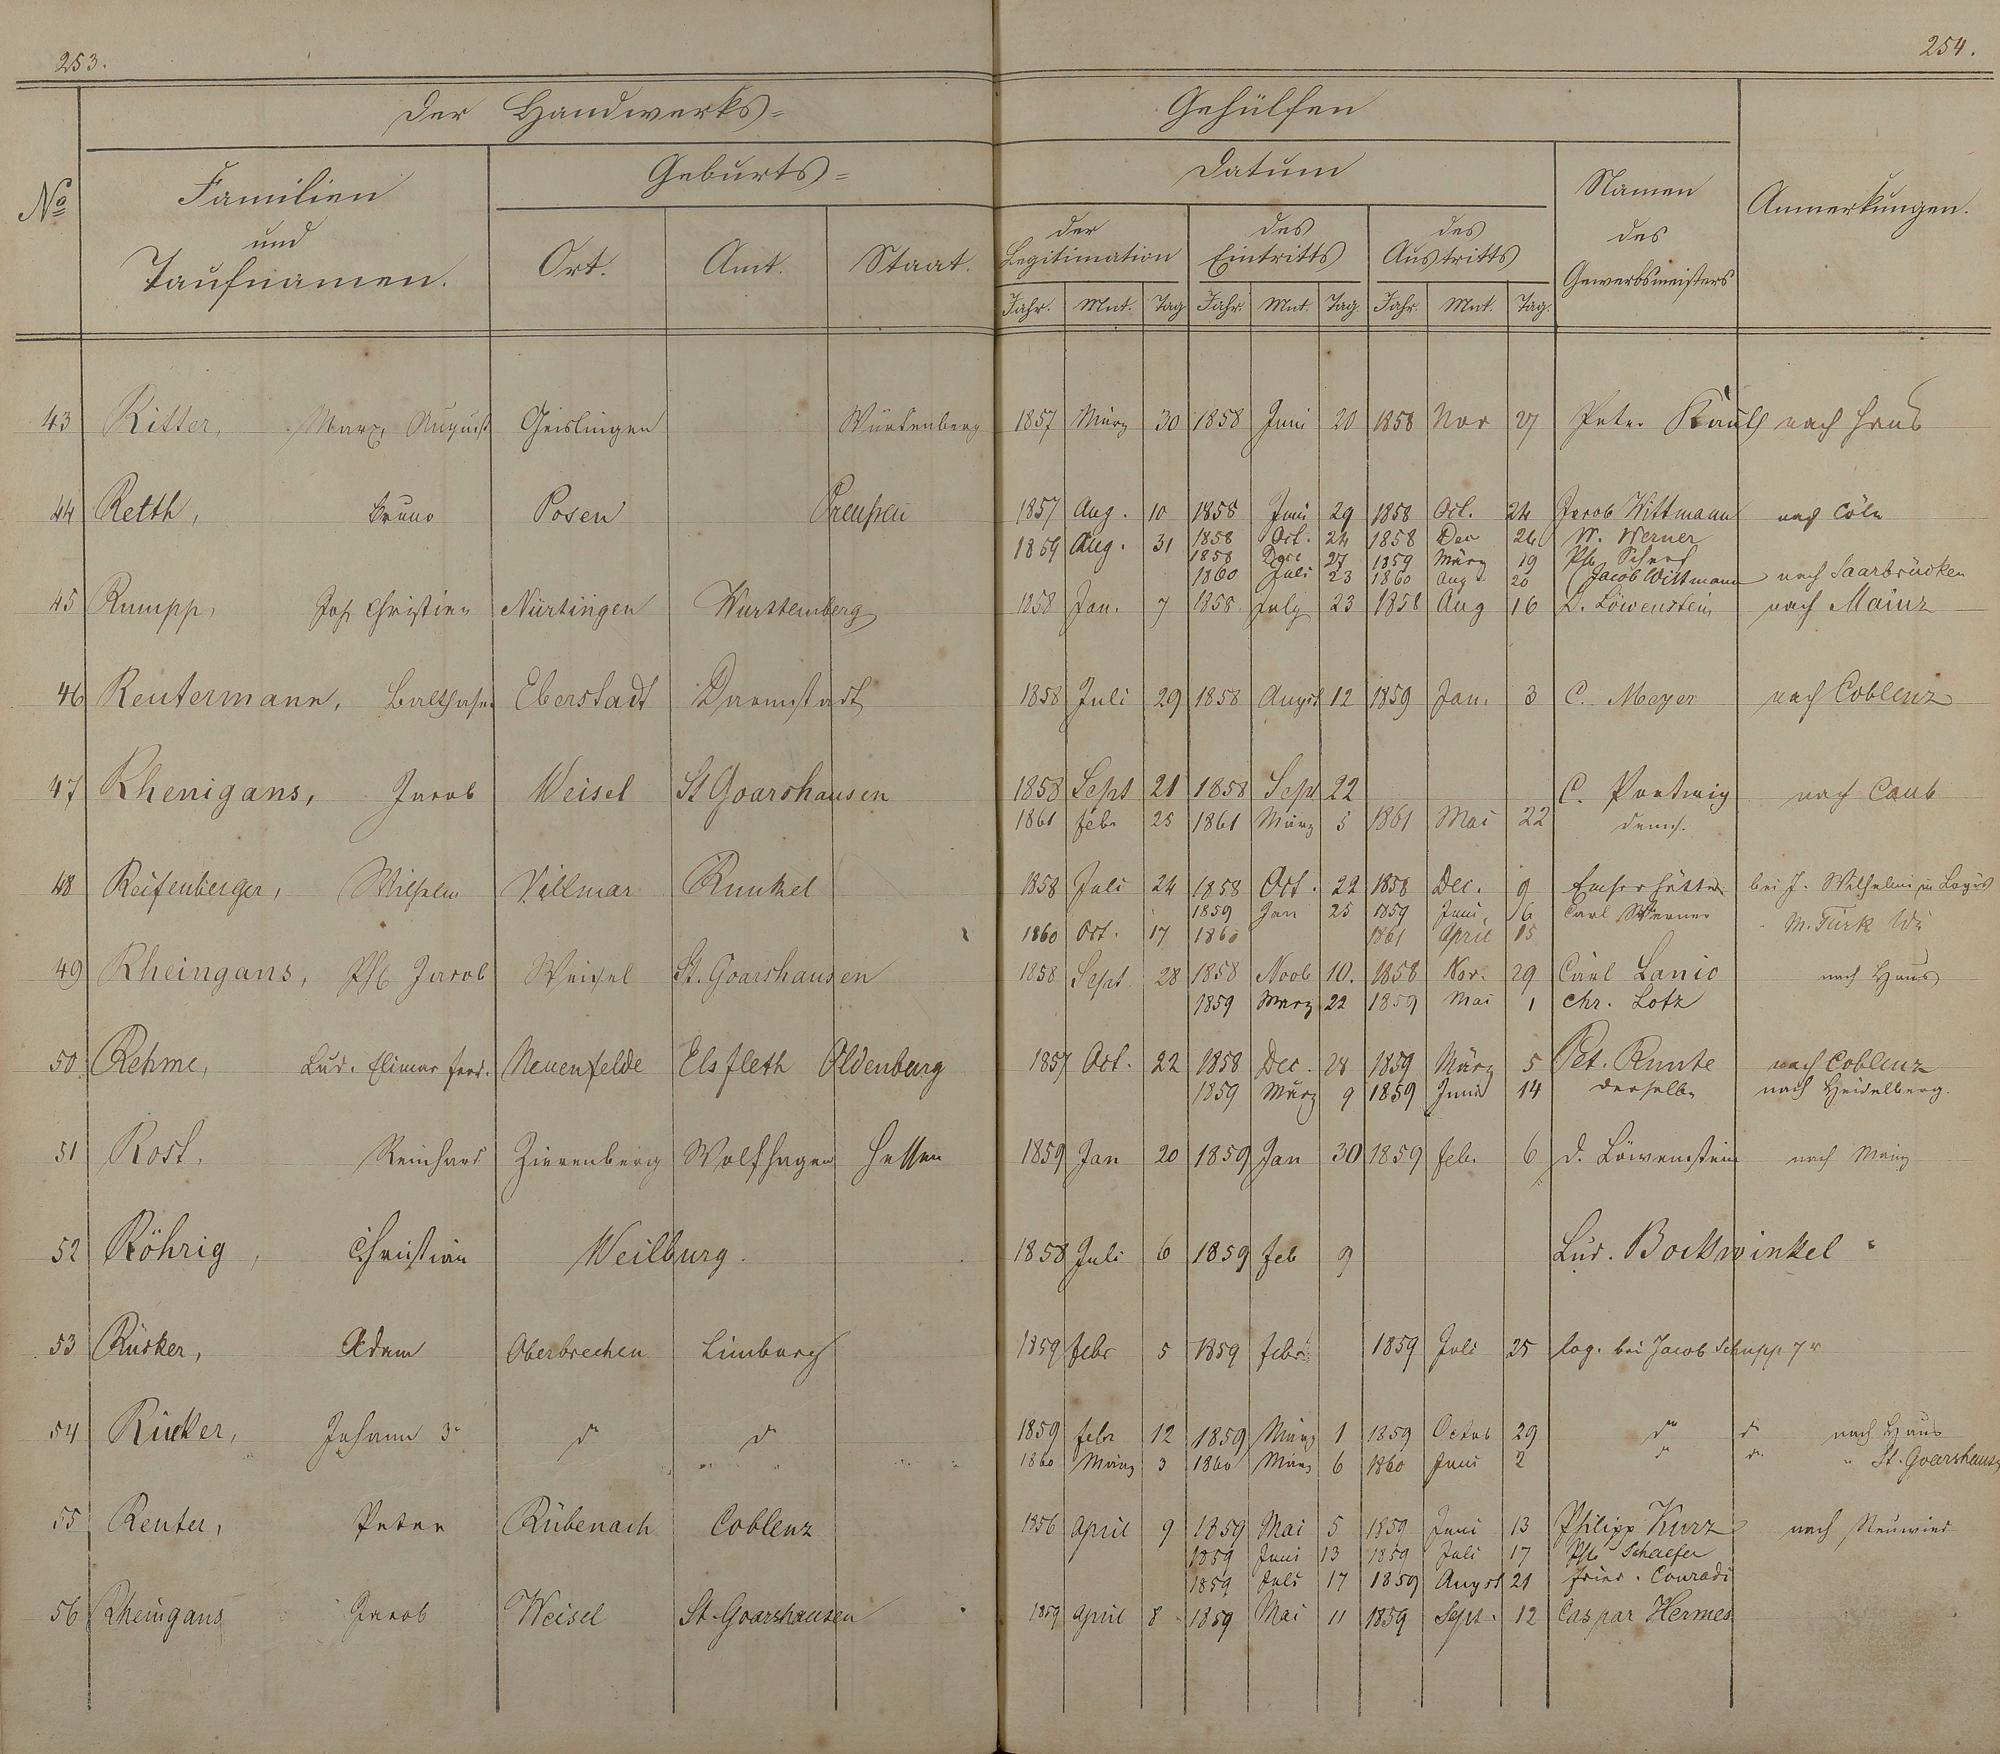 253.
254.
Der Handwerks= Gehülfen
No
Familien und Taufnamen.
Geburts=
Ort. Amt. Staat.
Datum
der Legitimation des Eintritts des Austritts
Jahr. Mnt. Tag Jahr. Mnt. Tag Jahr. Mnt. Tag.
Namen des Gewerbsmeisters
Anmerkungen.
43 Ritter, August Geislingen Würtenberg 1857 März 30 1858 Juni 20 1858 Nov 27 Peter nach
44 Retth, Bruno Posen Preußen 1857 Aug. 10 1858 Juni 29 1858 Oct. 24 Jacob Wittmann nach Cöln
1859 Aug. 31 1858 Oct. 24 1858 Dec 26 W. Werner
1858 Dec 27 1859 März 19 Ph.
1860 Juli 23 1860 Aug 20 Jacob Wittmann nach Saarbrücken
45 Rumpp, Joh Christian Nürtingen Wurttemberg 1858 Jan. 7 1858 July 23 1858 Aug 16 D. Löwenstein nach Mainz
46 Reutermann, Balthasar Eberstadt Darmstadt 1858 Juli 29 1858 August 12 1859 Jan. 3 C. Meyer nach Coblenz
47 Rhenigans, Jacob Weisel St Goarshausen 1858 Sept 21 1858 Sept 22 C. nach Caub
1861 febr 25 1861 März 5 1861 Mai 22
48 Reifenberger, Wilhelm Villmar Runkel 1858 Juli 24 1858 Oct. 22 1858 Dec. 9 Emserhütte bei J. Wilhelmi in Logis
1859 Jan 25 1859 Juni 16 Carl Werner
1860 Oct. 17 1860 1861 April 15 M. Türk
49 Rheingans, Ph Jacob Weisel St. Goarshausen 1858 Sept. 28 1858 Novb 10. 1858 Nov. 29 Carl Lanio nach Haus
1859 März 22 1859 Mai 1 Chr. Lotz
50 Rehme, Lud. Elimar Ferd. Neuenfelde Elsfleth Oldenburg 1857 Oct. 22 1858 Dec. 28 1859 März 5 Pet. Runte nach Coblenz
1859 März 9 1859 Juni 14 derselbe nach Heidelberg.
51 Rost, Reinhard Zierenberg Wolfhagen Hessen 1859 Jan 20 1859 Jan 30 1859 febr 6 D. Löwenstein nach Mainz
52 Röhrig, Christian Weilburg. 1858 Juli 6 1859 feb 9 Lud. Bockwinkel
53 Rücker, Adam Oberbrechen Limburg 1859 febr 5 1859 febr 1859 Juli 25 log. bei Jacob Schupp
54 Rücker, Johann 3r do do 1859 febr 12 1859 März 1 1859 Octob 29 do do nach Haus
1860 März 3 1860 März 6 1860 Juni 2 do do " St. Goarshausen
55 Reuter, Peter Rübenach Coblenz 1856 April 9 1859 Mai 5 1859 Juni 13 Philipp Kurz nach Neuwied
1859 Juni 13 1859 Juli 17 Ph Schaefer
1859 Juli 17 1859 August 21 Fried. Conradi
56 Rheingans Jacob Weisel St. Goarshausen 1859 April 8 1859 Mai 11 1859 Sept. 12 Caspar Hermes